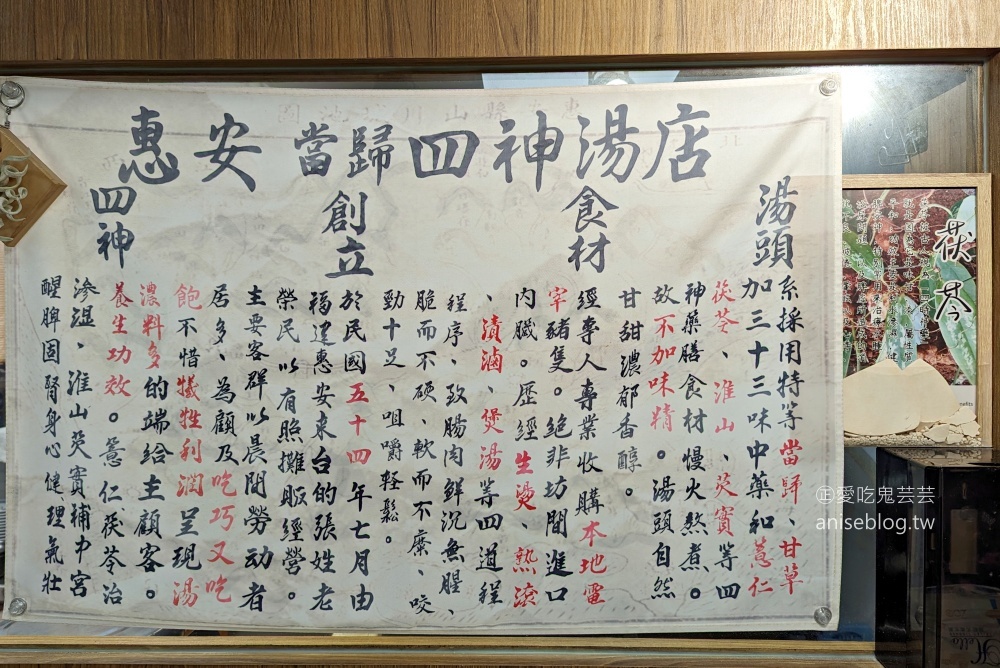 惠安當歸四神湯店
湯頭
系採用特等當歸、甘草
加三十三味中藥和薏仁
茯苓、淮山、芡實等四
神藥膳食材慢火熬煮。
故不加味精。湯頭自然
甘甜濃郁香醇。
食材
經專人專業收購本地電
宰豬隻。絕非坊間進口
內臟。歷經生燙、熱滾
、漬滷、煲湯等四道程
程序、致腸肉鮮沉無腥、
脆而不硬、軟而不糜、咬
勁十足、咀嚼輕鬆。
創立
於民國五十四年七月由
福建惠安來台的張姓老
榮民以有照攤販經營。
主要客群以晨間勞动者
居多、為顧及吃巧又吃
飽不惜犧牲利潤呈現湯
濃料多的端給主顧客。
四神
養生功效。薏仁茯苓治
滲濕、淮山芡實補中宮
醒脾固腎身心健理氣壯
茯苓
愛吃鬼芸芸
aniseblog.tw